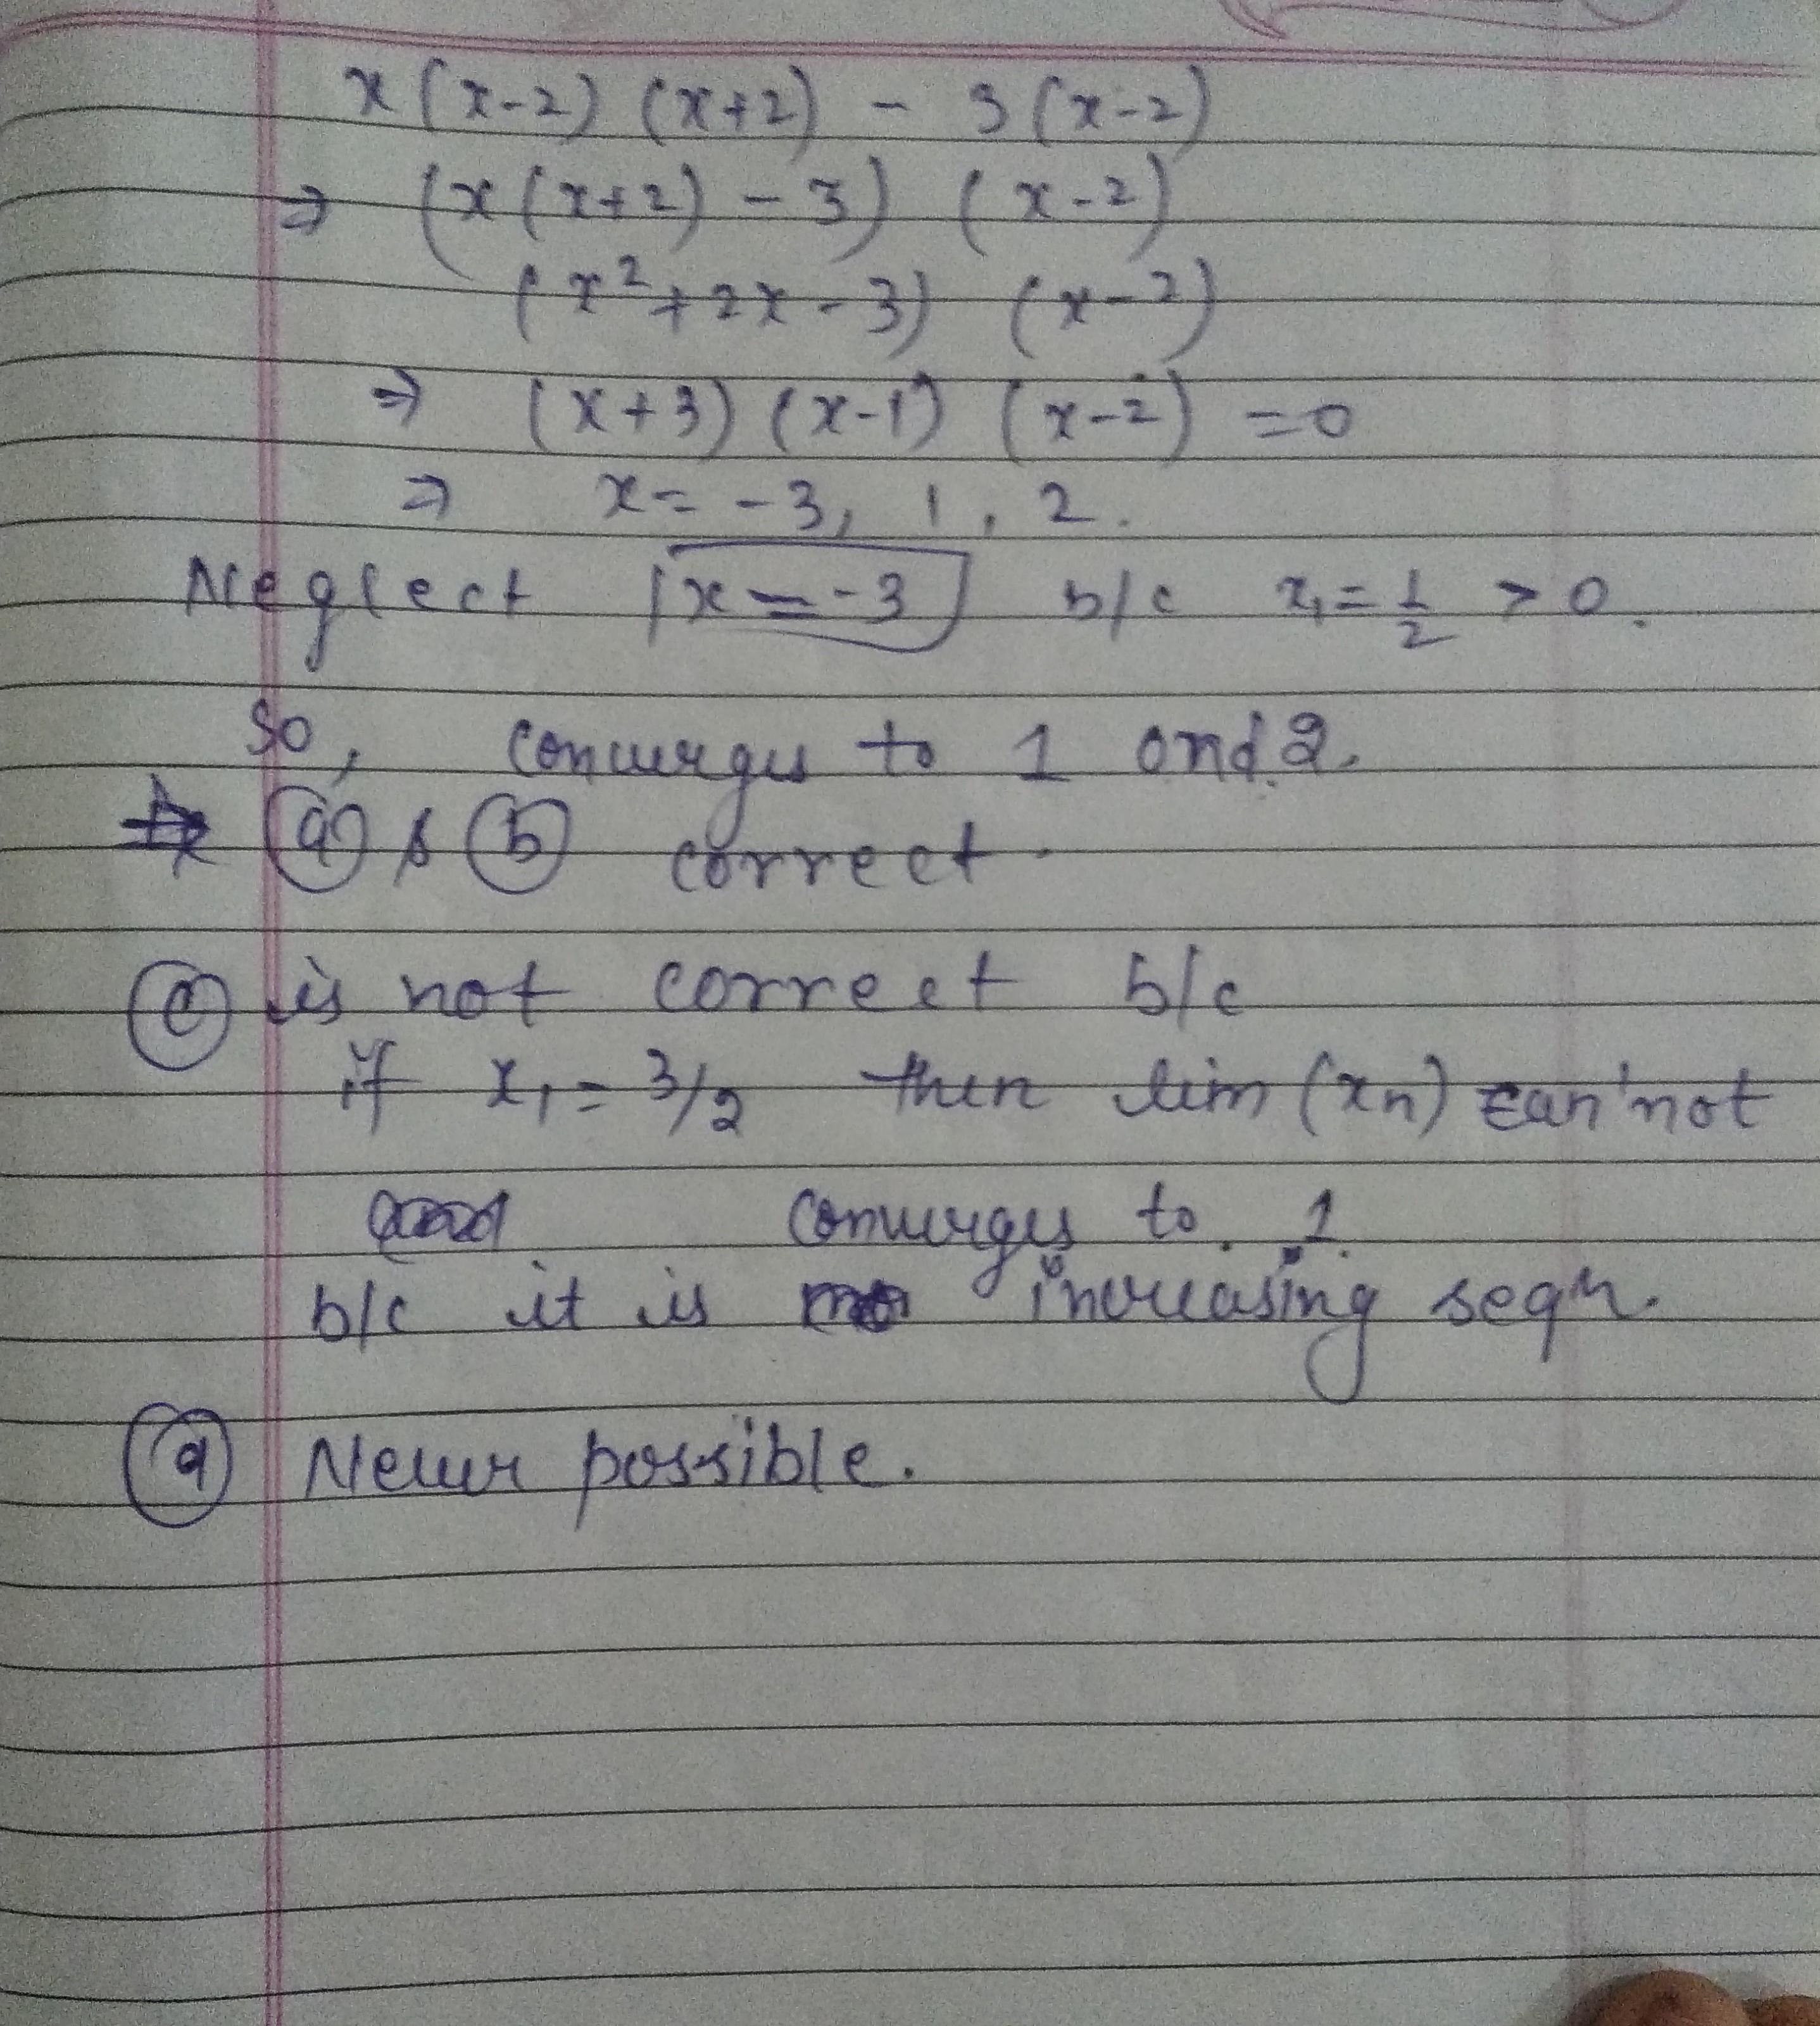 x(x-2) (x+2) - 3(x-2)
⇒ (x(x+2) - 3) (x-2)
(x²+2x-3) (x-2)
⇒ (x+3) (x-1) (x-2) =0
⇒ x= -3, 1, 2.
Neglect [x=-3] b/c x₁=1/2 > 0.
So, converges to 1 and 2.
(a) & (b) correct.
(c) is not correct b/c
if x₁=3/2 then lim (xn) can'not
converges to 1.
b/c it is increasing seqn.
(d) Never possible.